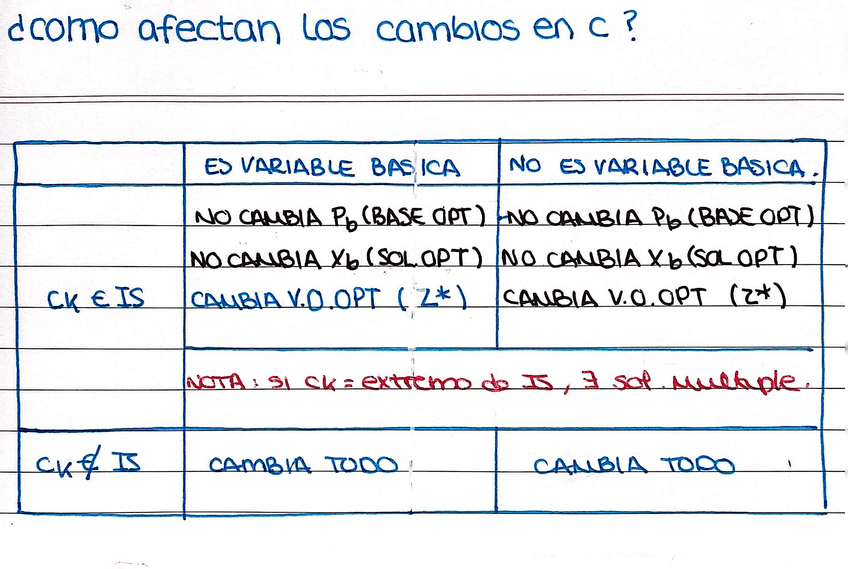 ¿como afectan los cambios en c?
ES VARIABLE BASICA
NO ES VARIABLE BASICA.
CK ∈ IS
NO CAMBIA Pb (BASE OPT)
NO CAMBIA Xb (SOL OPT)
CAMBIA V.O.OPT (Z*)
NO CAMBIA Pb (BASE OPT)
NO CAMBIA Xb (SOL OPT)
CAMBIA V.O.OPT (Z*)
NOTA: si CK = extremo do IS, ∃ sol. multiple.
CK ∉ IS
CAMBIA TODO
CAMBIA TODO